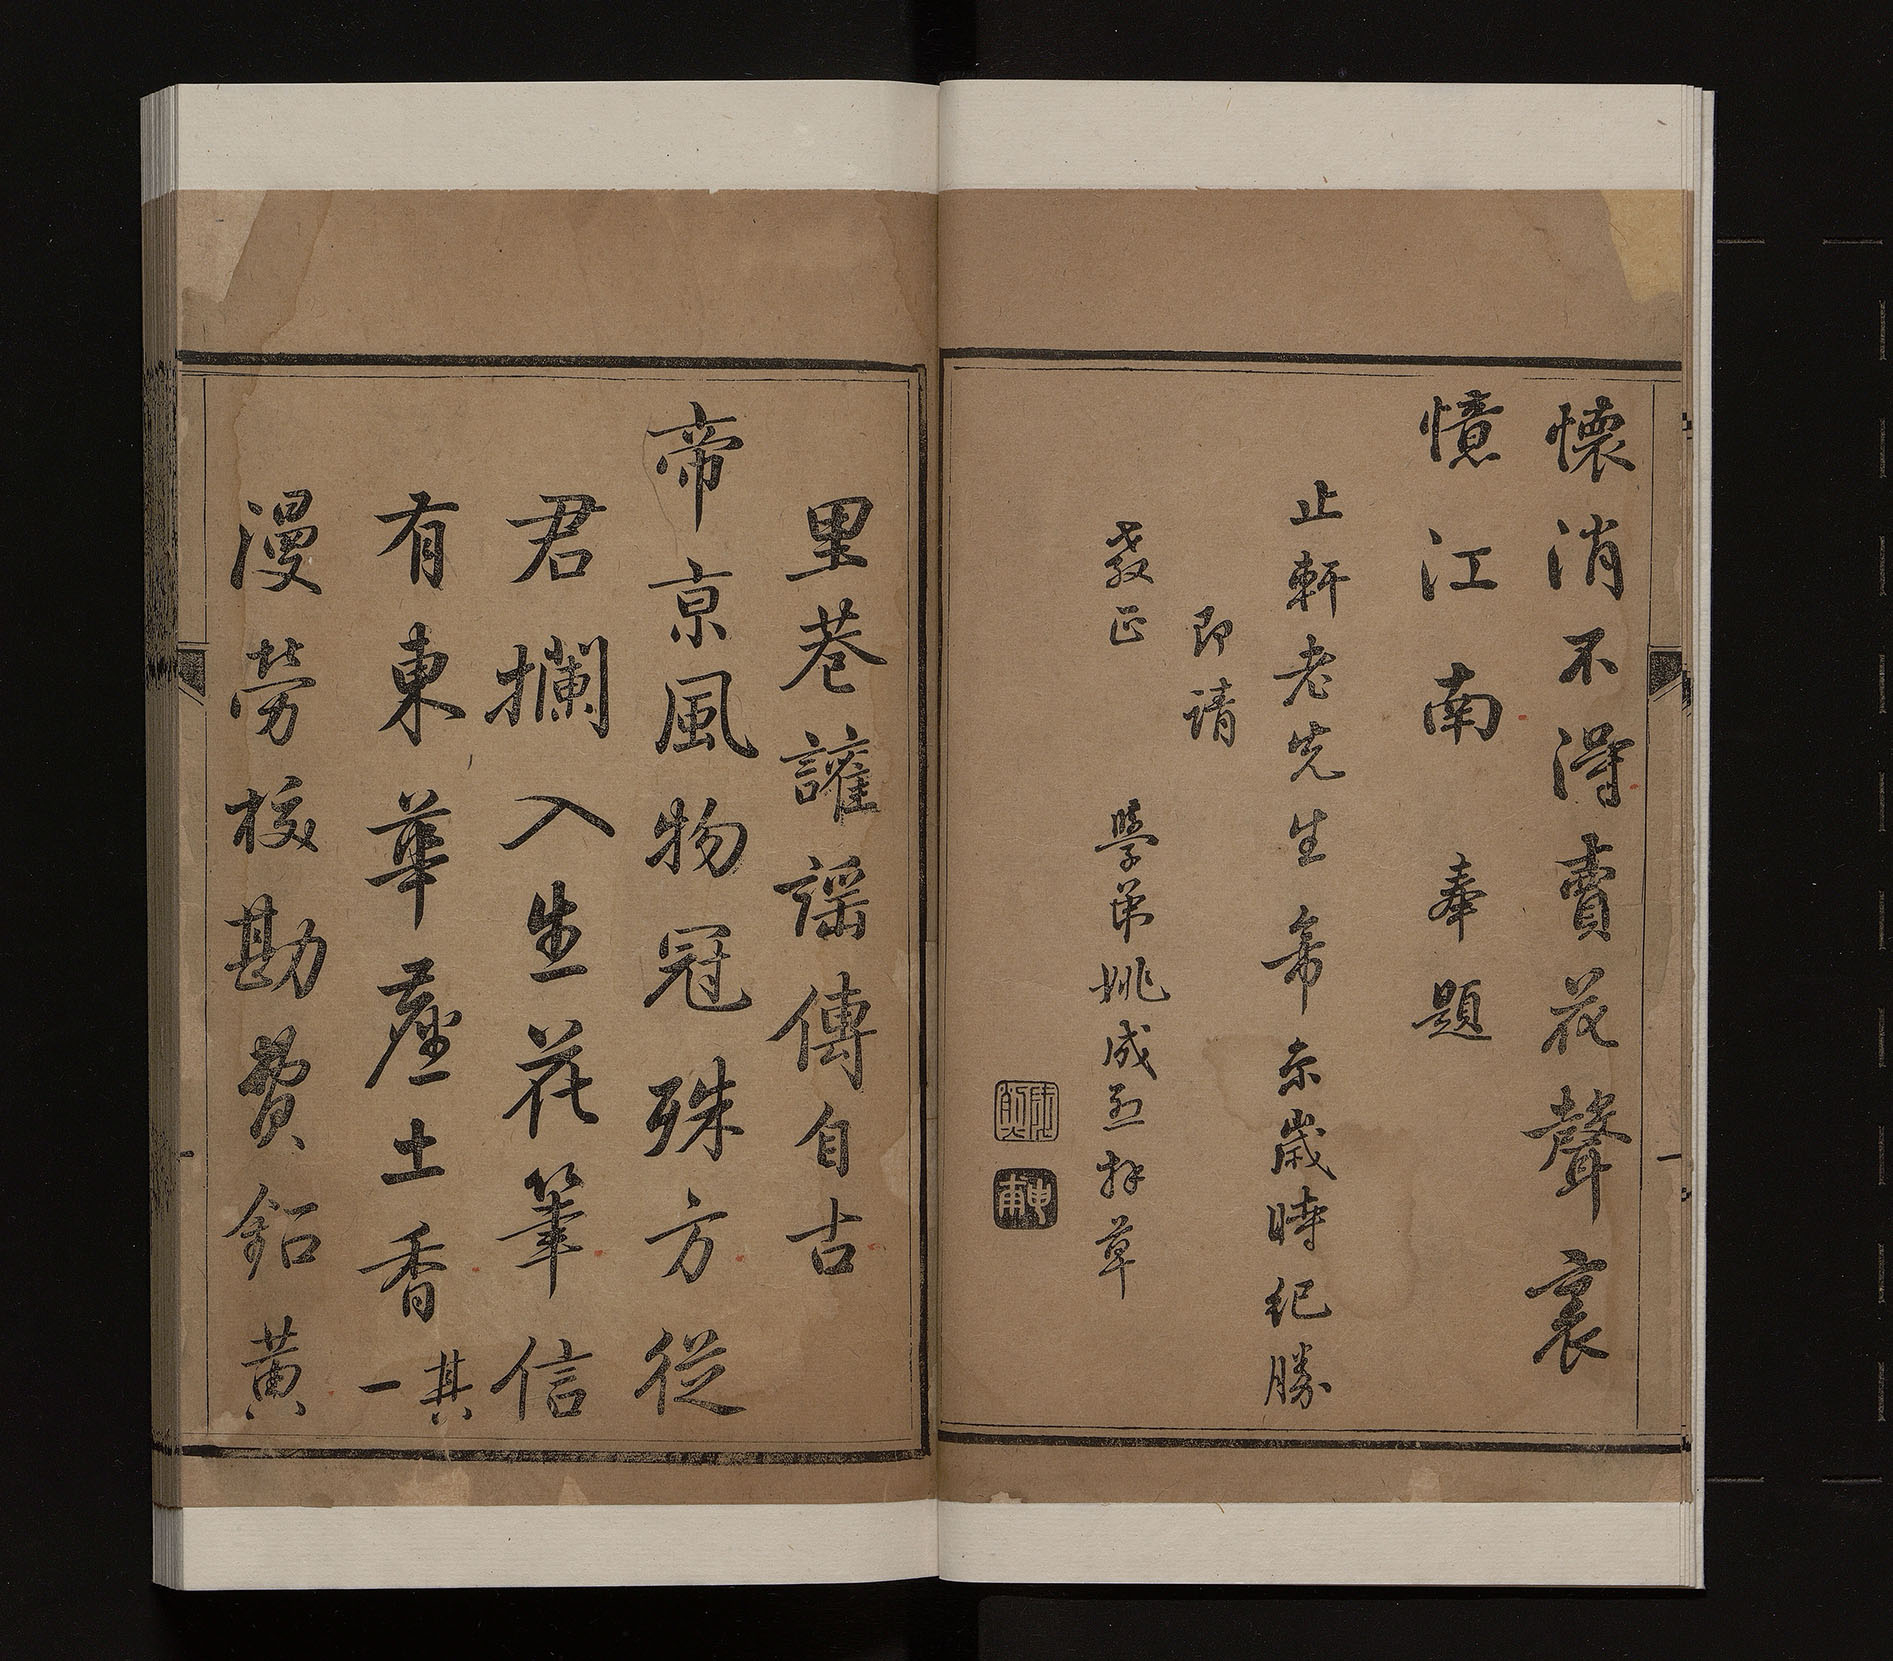 懷消不得賣花聲裏
憶江南 奉題
止軒老先生帝京歲時紀勝
即請
教正 學弟姚成烈拜草
申甫
里巷讙謡傳自古
帝京風物冠殊方從
君攔入生花筆信
有東華塵土香 其一
漫勞校勘費鉛黃